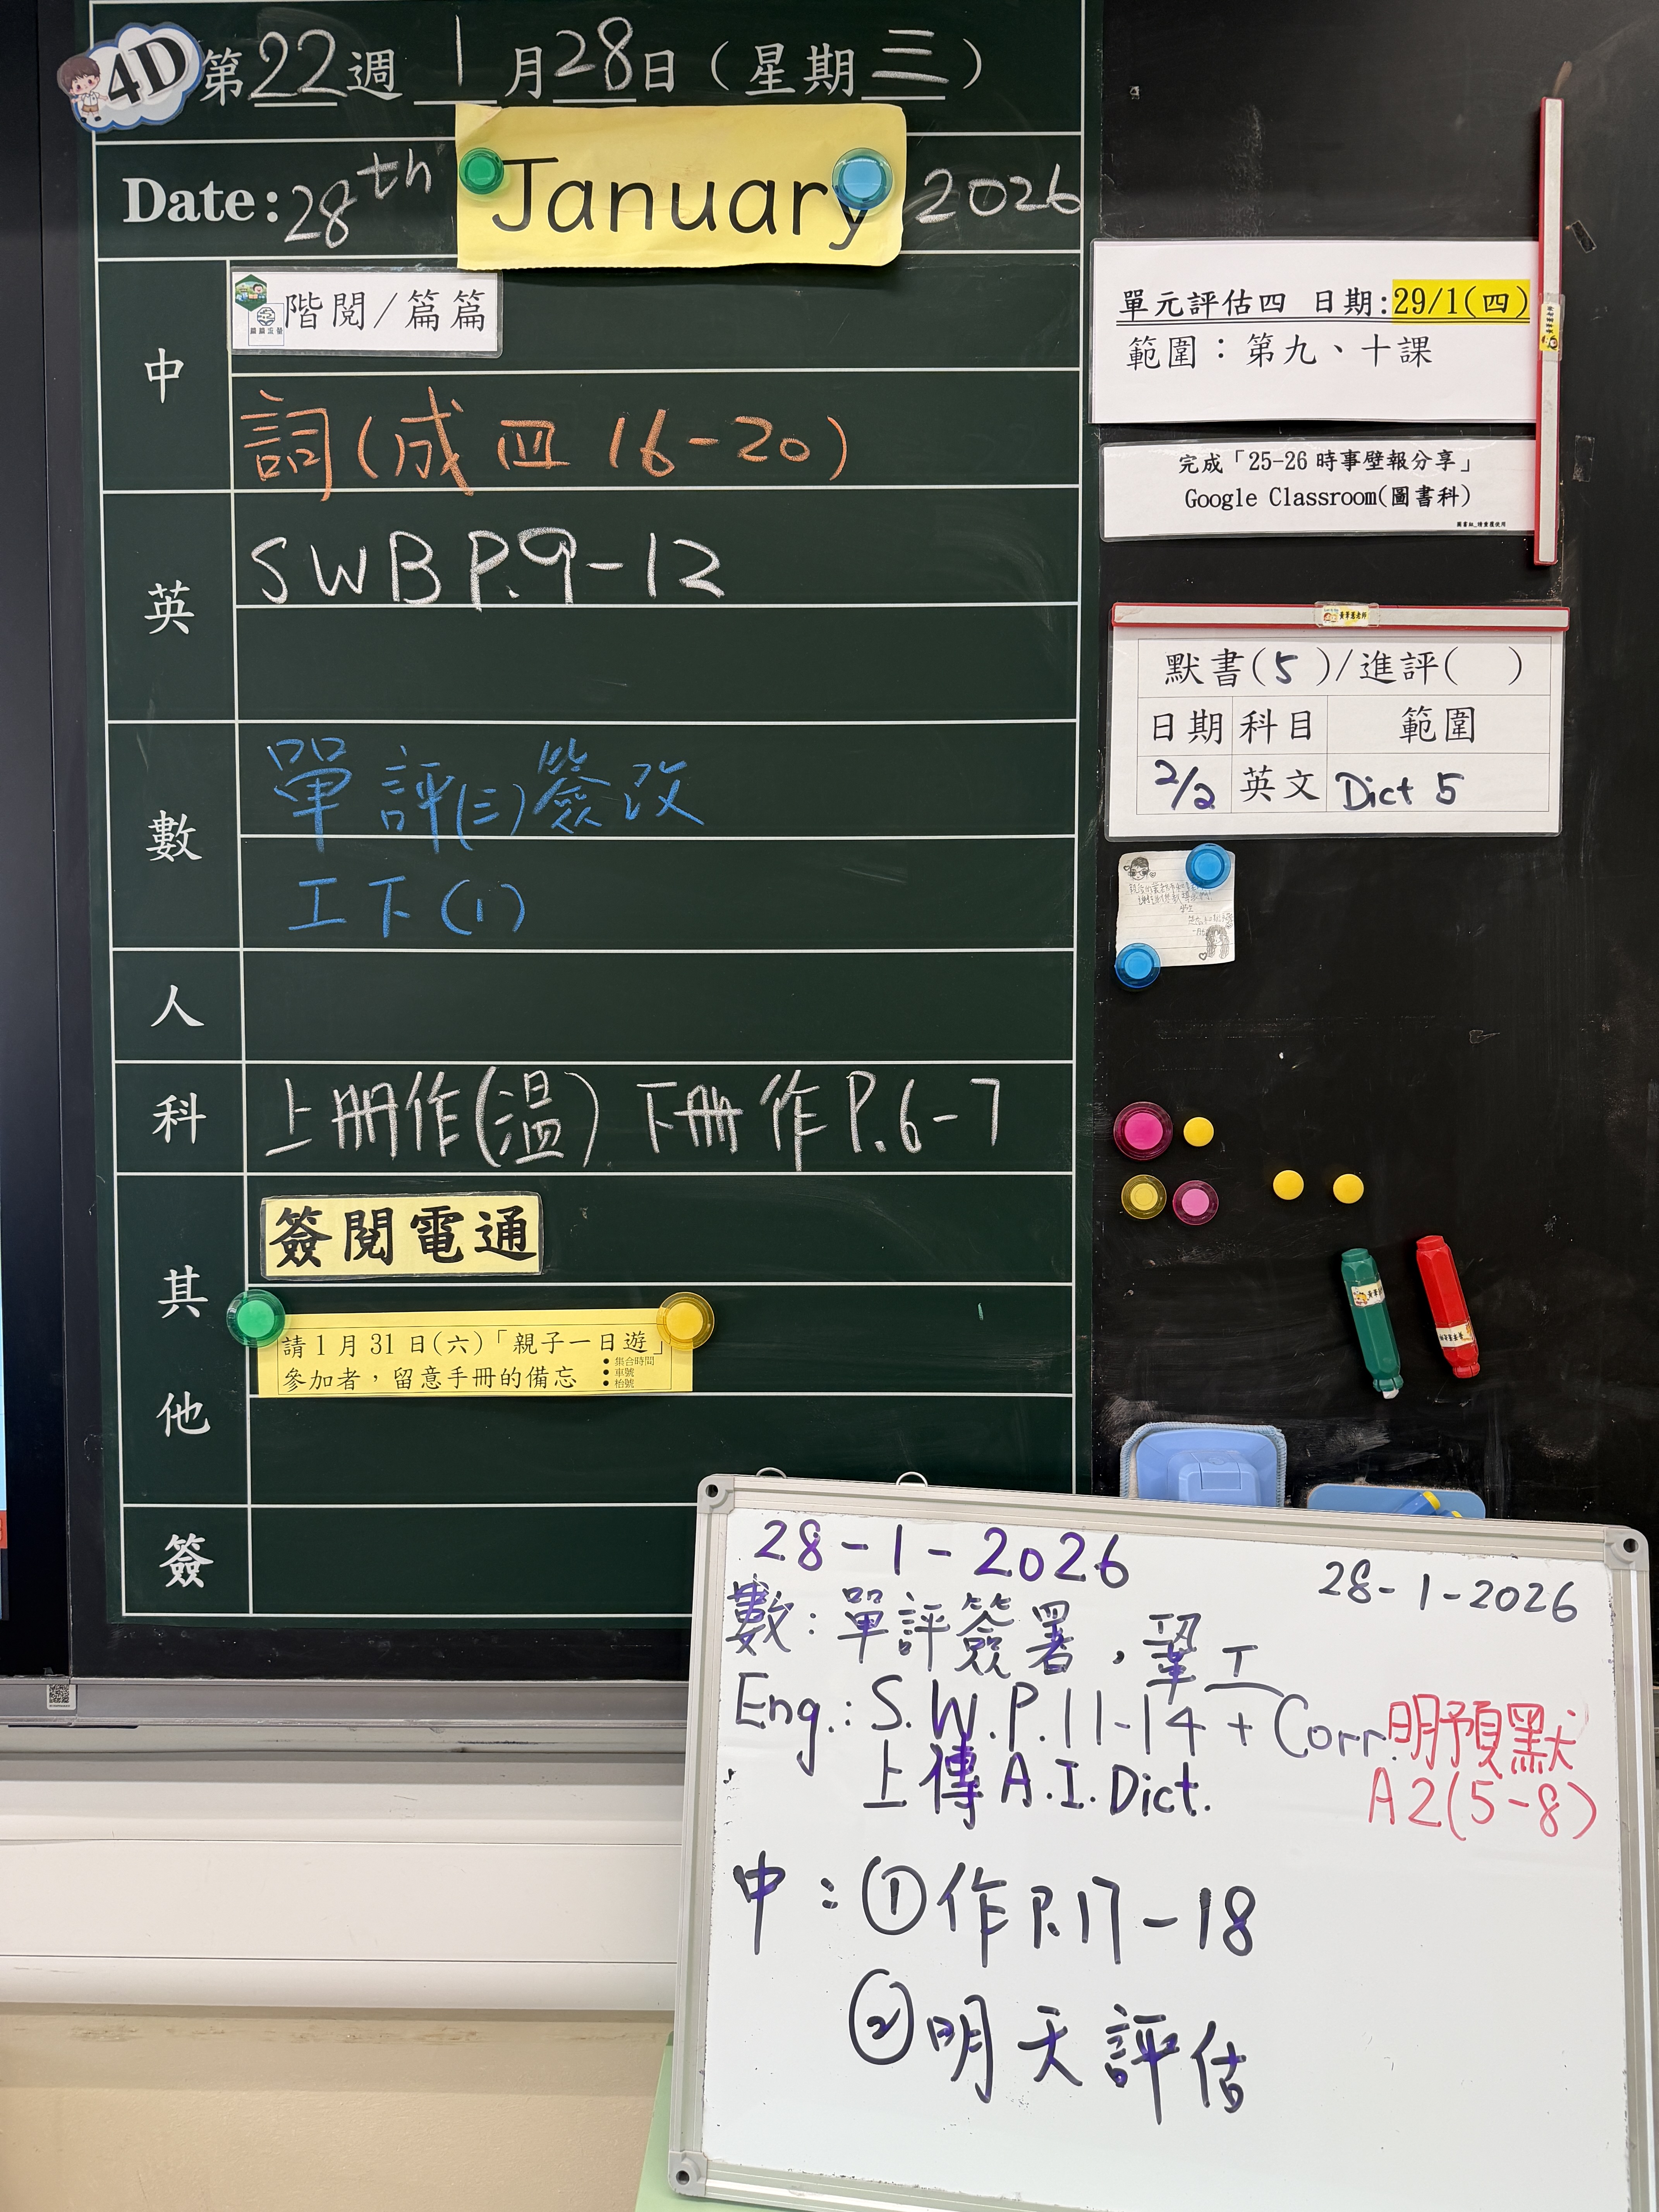 4D 第22週 1月28日(星期三)
Date: 28th January 2026
中
階閱/篇篇
詞(成四 16-20)
英
SWB P.9-12
數
單評(三)簽改
工下(1)
人
科
上冊作(溫) 下冊作 P.6-7
其他
簽閱電通
請1月31日(六)「親子一日遊」
參加者,留意手冊的備忘
• 集合時間
• 車號
• 枱號
簽
單元評估四 日期:29/1(四)
範圍:第九、十課
完成「25-26 時事壁報分享」
Google Classroom(圖書科)
默書(5)/進評( )
日期 科目 範圍
2/2 英文 Dict 5
28-1-2026
28-1-2026
數:單評簽署,鞏工
Eng.: S.W.P.11-14 + Corr.
上傳 A.I.Dict.
明預默
A2(5-8)
中:①作P.17-18
②明天評估